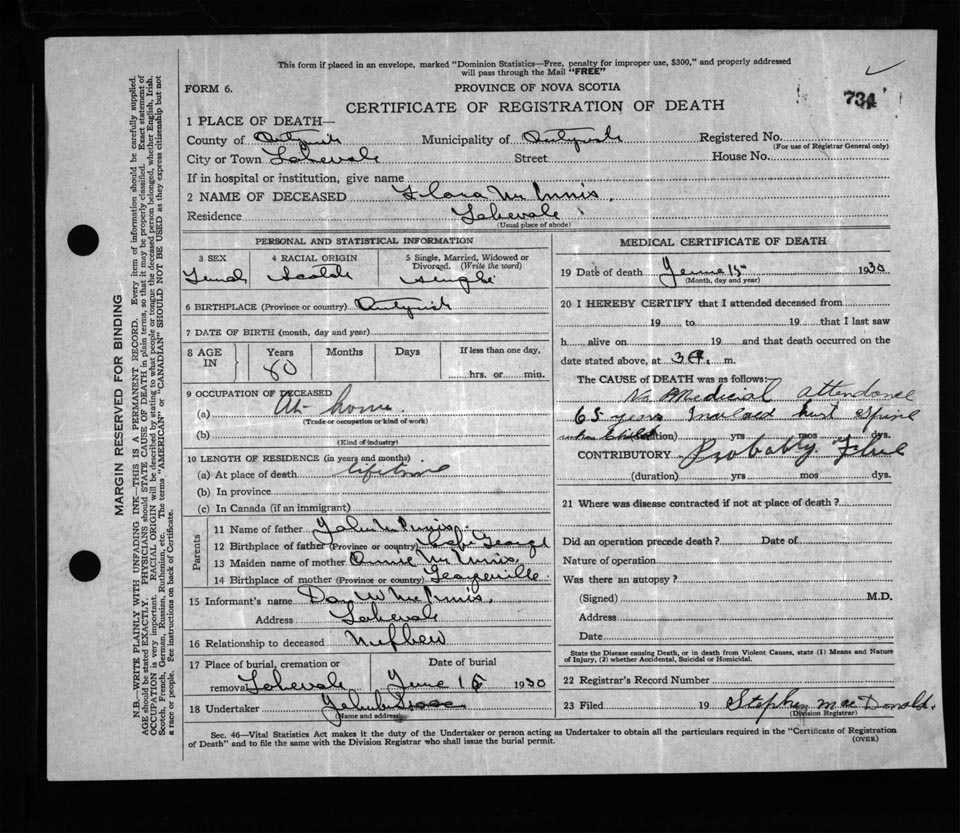 This form if placed in an envelope, marked "Dominion Statistics—Free, penalty for improper use, $300," and properly addressed
will pass through the Mail "FREE"
FORM 6.
PROVINCE OF NOVA SCOTIA
734
CERTIFICATE OF REGISTRATION OF DEATH
1 PLACE OF DEATH—
County of Antigonish Municipality of Antigonish Registered No.
(For use of Registrar General only)
City or Town Lakevale Street House No.
If in hospital or institution, give name
2 NAME OF DECEASED Flora McInnis.
Residence Lakevale
(Usual place of abode)
PERSONAL AND STATISTICAL INFORMATION
3 SEX 4 RACIAL ORIGIN 5 Single, Married, Widowed or Divorced. (Write the word)
Female Scotch single
6 BIRTHPLACE (Province or country) Antigonish
7 DATE OF BIRTH (month, day and year)
8 AGE IN Years Months Days If less than one day,
80 hrs. or min.
9 OCCUPATION OF DECEASED
(a) At home.
(Trade or occupation or kind of work)
(b)
(Kind of industry)
10 LENGTH OF RESIDENCE (in years and months)
(a) At place of death lifetime
(b) In province
(c) In Canada (if an immigrant)
Parents
11 Name of father John McInnis.
12 Birthplace of father (Province or country) Cape George
13 Maiden name of mother Annie McInnis.
14 Birthplace of mother (Province or country) Georgeville.
15 Informant's name Dan W McInnis.
Address Lakevale
16 Relationship to deceased Nephew
17 Place of burial, cremation or removal Lakevale Date of burial June 15 1930
18 Undertaker John
(Name and address)
MEDICAL CERTIFICATE OF DEATH
19 Date of death June 15 1930
(Month, day and year)
20 I HEREBY CERTIFY that I attended deceased from
19 to 19 that I last saw
h alive on 19 and that death occurred on the
date stated above, at 3 A. m.
The CAUSE of DEATH was as follows:
No Medical attendance
65 years Invalid hurt spine
when Child (duration) yrs mos dys.
CONTRIBUTORY Probably
(duration) yrs mos dys.
21 Where was disease contracted if not at place of death?
Did an operation precede death? Date of
Nature of operation
Was there an autopsy?
(Signed) M.D.
Address
Date
State the Disease causing Death, or in death from Violent Causes, state (1) Means and Nature
of Injury, (2) whether Accidental, Suicidal or Homicidal.
22 Registrar's Record Number
23 Filed 19 Stephen MacDonald.
(Division Registrar)
Sec. 46—Vital Statistics Act makes it the duty of the Undertaker or person acting as Undertaker to obtain all the particulars required in the "Certificate of Registration
of Death" and to file the same with the Division Registrar who shall issue the burial permit.
(OVER)
MARGIN RESERVED FOR BINDING
N.B.—WRITE PLAINLY WITH UNFADING INK—THIS IS A PERMANENT RECORD. Every item of information should be carefully supplied.
AGE should be stated EXACTLY. PHYSICIANS should STATE CAUSE OF DEATH in plain terms, so that it may be properly classified. Exact statement of
OCCUPATION is very important. RACIAL ORIGIN will be described by stating to what people or tongue the deceased person belonged, whether English, Irish,
Scotch, French, German, Russian, Ruthenian, etc. The terms "AMERICAN" or "CANADIAN" SHOULD NOT BE USED as they express citizenship but not
a race or people. See instructions on back of Certificate.